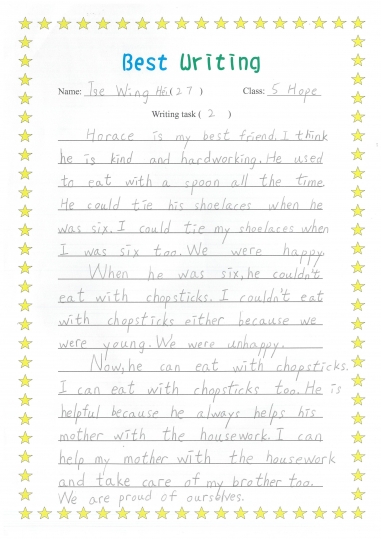 Best Writing
Name: Tse Wing Hei (27) Class: 5 Hope
Writing task ( 2 )
Horace is my best friend. I think
he is kind and hardworking. He used
to eat with a spoon all the time.
He could tie his shoelaces when he
was six. I could tie my shoelaces when
I was six too. We were happy.
When he was six, he couldn't
eat with chopsticks. I couldn't eat
with chopsticks either because we
were young. We were unhappy.
Now, he can eat with chopsticks.
I can eat with chopsticks too. He is
helpful because he always helps his
mother with the housework. I can
help my mother with the housework
and take care of my brother too.
We are proud of ourselves.